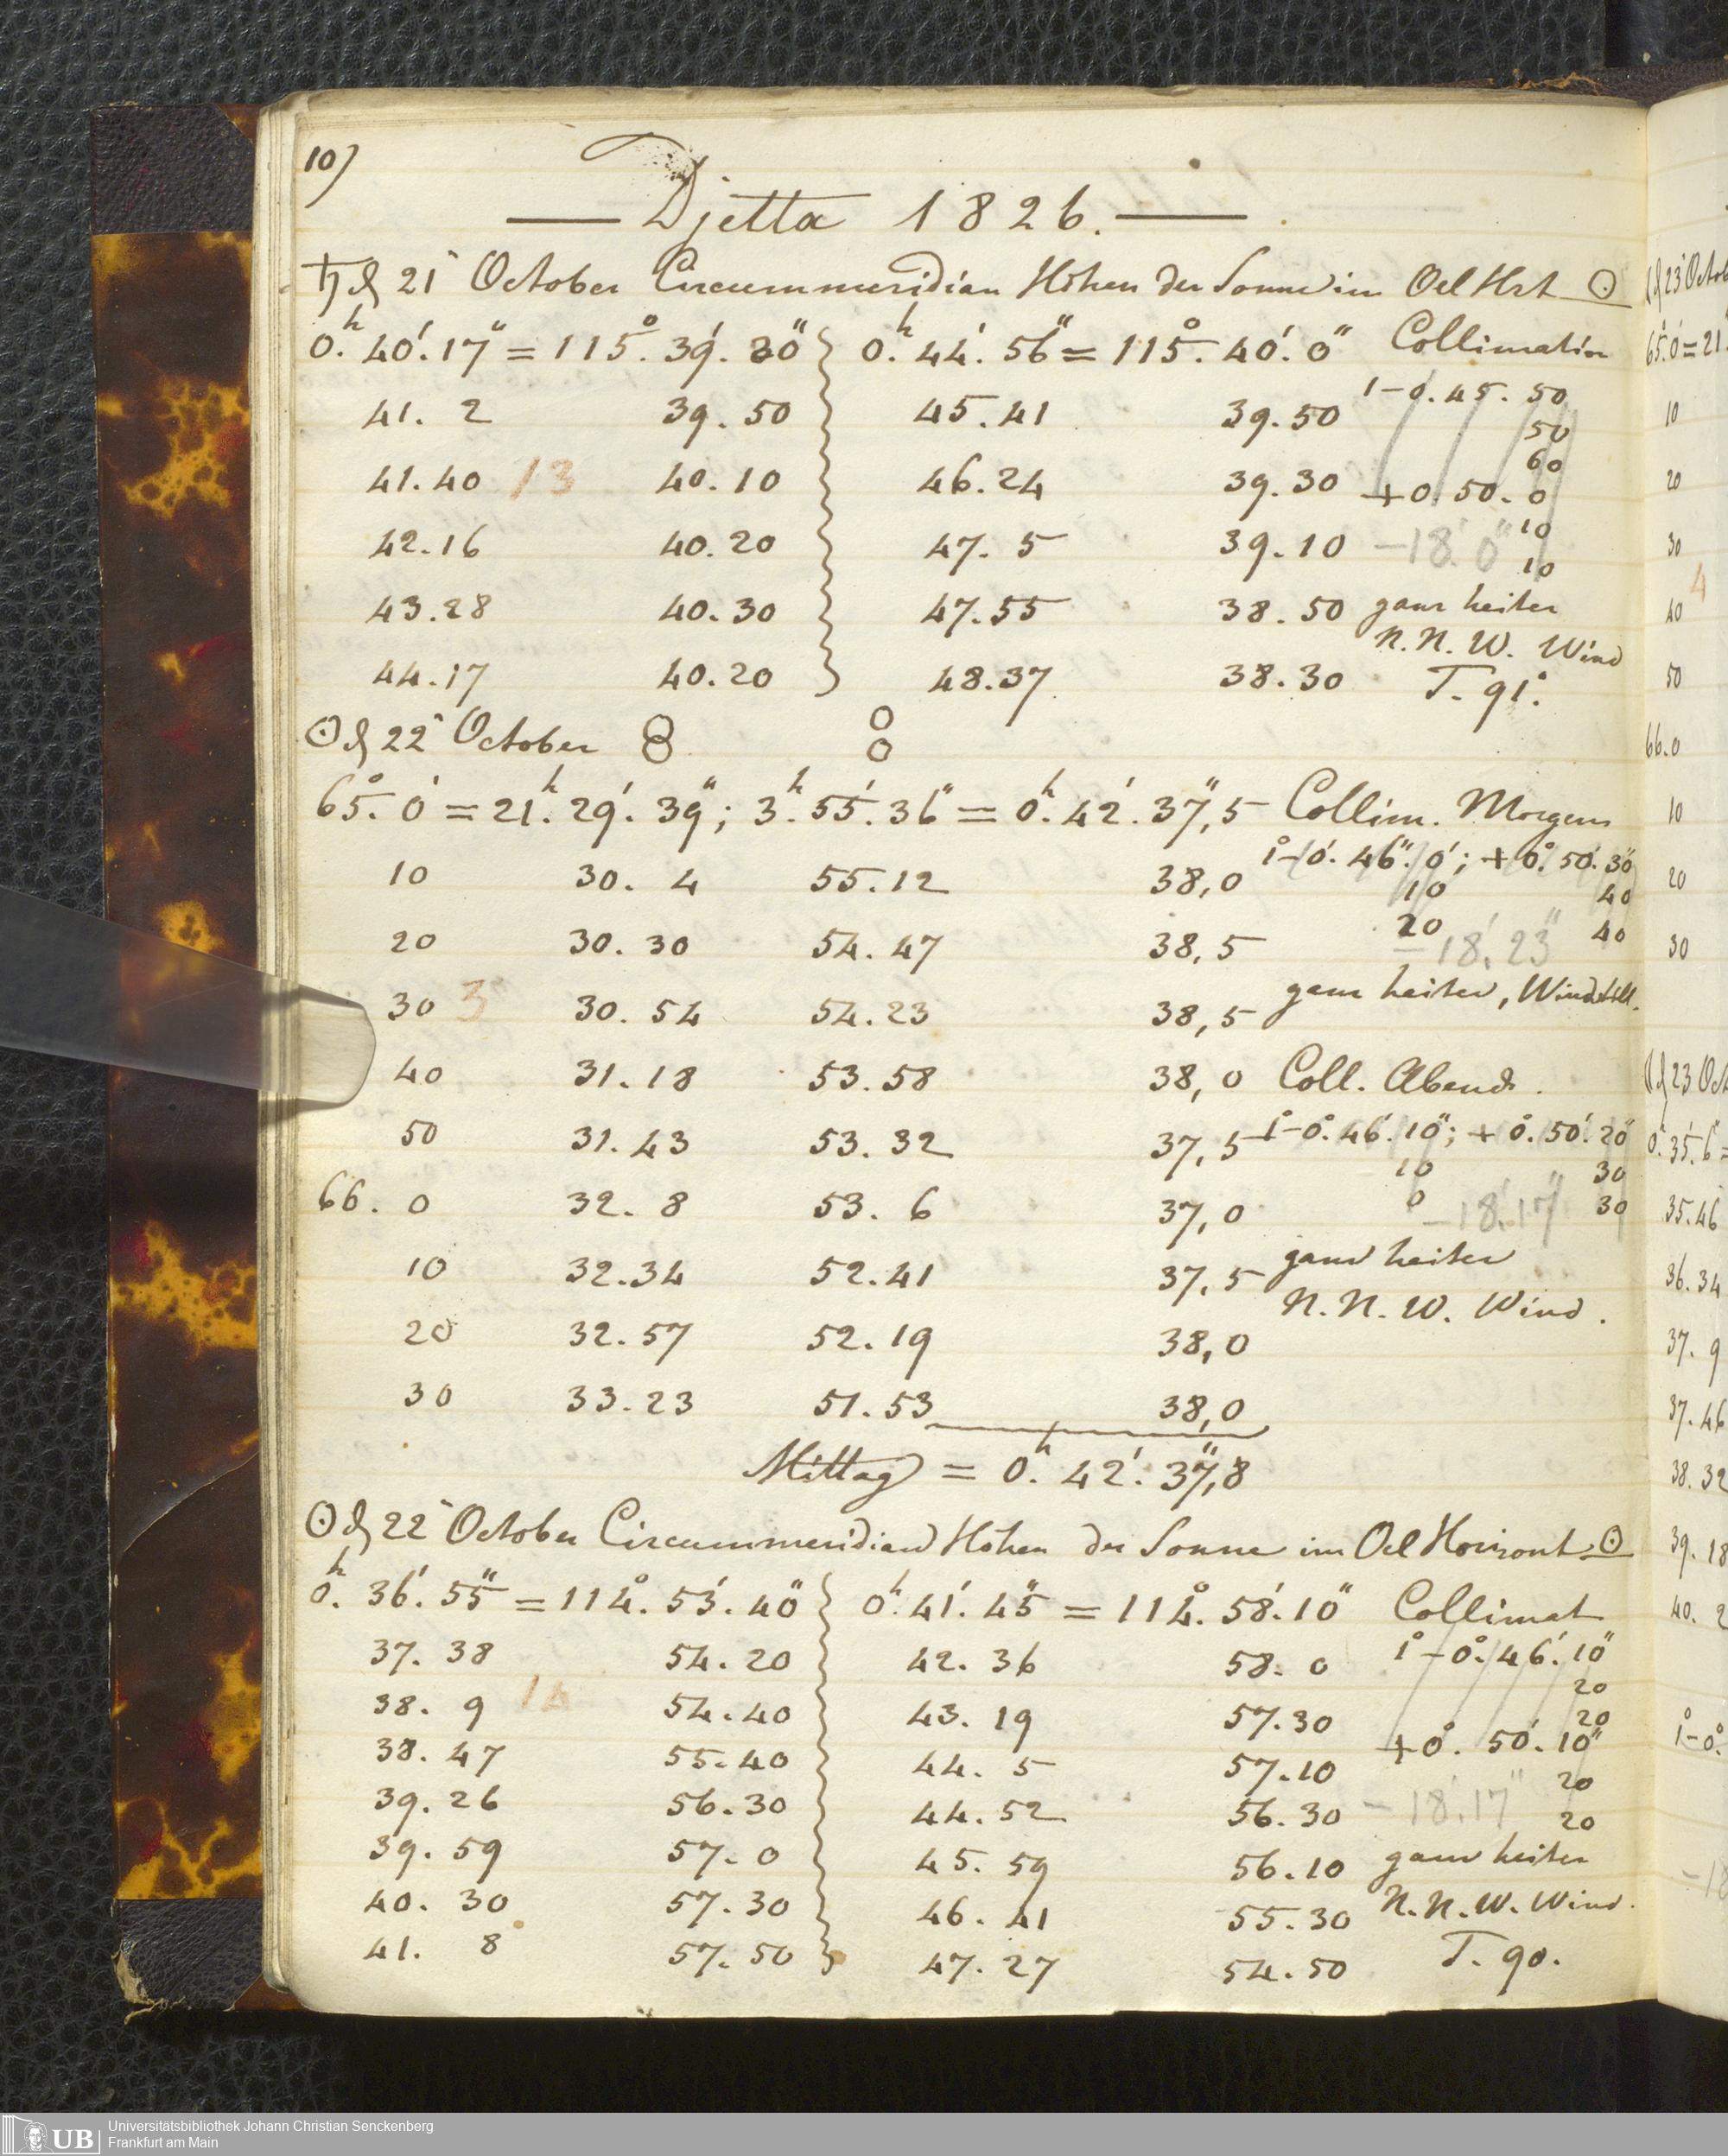 10)
Djetta 1826.
♄ d 21 October Circummeridian Höhen der Sonne im Oel Hrt ☉
0.h 40.' 17" = 115.° 39.' 30" 0.h 44.' 56" = 115.° 40.' 0" Collimation
41. 2 39.50 45.41 39.50 1-0.45.50
50
41.40 13 40.10 46.24 39.30 60
+0.50.0
42.16 40.20 47.5 39.10 -18.'0" 10
10
43.28 40.30 47.55 38.50 ganz heiter
N.N.W. Wind
44.17 40.20 48.37 38.30 T. 91.°
☉ d 22 October
65.° 0' = 21.h 29.' 39"; 3.h 55.' 36" = 0.h 42.' 37",5 Collim. Morgens
10 30. 4 55.12 38,0 1°-0.' 46".0'; +0.° 50.' 30"
10 40
20 30.30 54.47 38,5 20 40
-18.'23"
30 3 30.54 54.23 38,5 ganz heiter, Windstill.
40 31.18 53.58 38,0 Coll. Abends.
50 31.43 53.32 37,5 1°-0.° 46.' 10"; +0.° 50.' 20"
10 30
66. 0 32. 8 53. 6 37,0 0 -18.'17" 30
10 32.34 52.41 37,5 ganz heiter
N.N.W. Wind.
20 32.57 52.19 38,0
30 33.23 51.53 38,0
Mittag = 0.h 42.' 37",8
☉ d 22 October Circummeridian Höhen der Sonne im Oel Horizont ☉
0.h 36.' 55" = 114.° 53.' 40" 0.h 41.' 45" = 114.° 58.' 10" Collimat
37. 38 54.20 42. 36 58. 0 1°-0.° 46.' 10"
20
38. 9 14 54.40 43. 19 57.30 20
38. 47 55.40 44. 5 57.10 +0.° 50.' 10"
20
39. 26 56.30 44.52 56.30 -18.'17" 20
39. 59 57. 0 45. 59 56.10 ganz heiter
40. 30 57.30 46. 41 55.30 N.N.W. Wind.
41. 8 57.50 47. 27 54.50 T. 90.
65.° 0' = 21
10
20
30
4
40
50
66.0
10
20
30
35.46
36.34
37. 9
37.46
38.32
39.18
40. 2
1°-0.°
UB Universitätsbibliothek Johann Christian Senckenberg
Frankfurt am Main